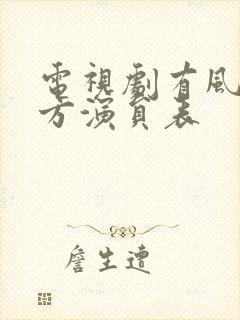 電視劇有風
方演員表
詹生遭